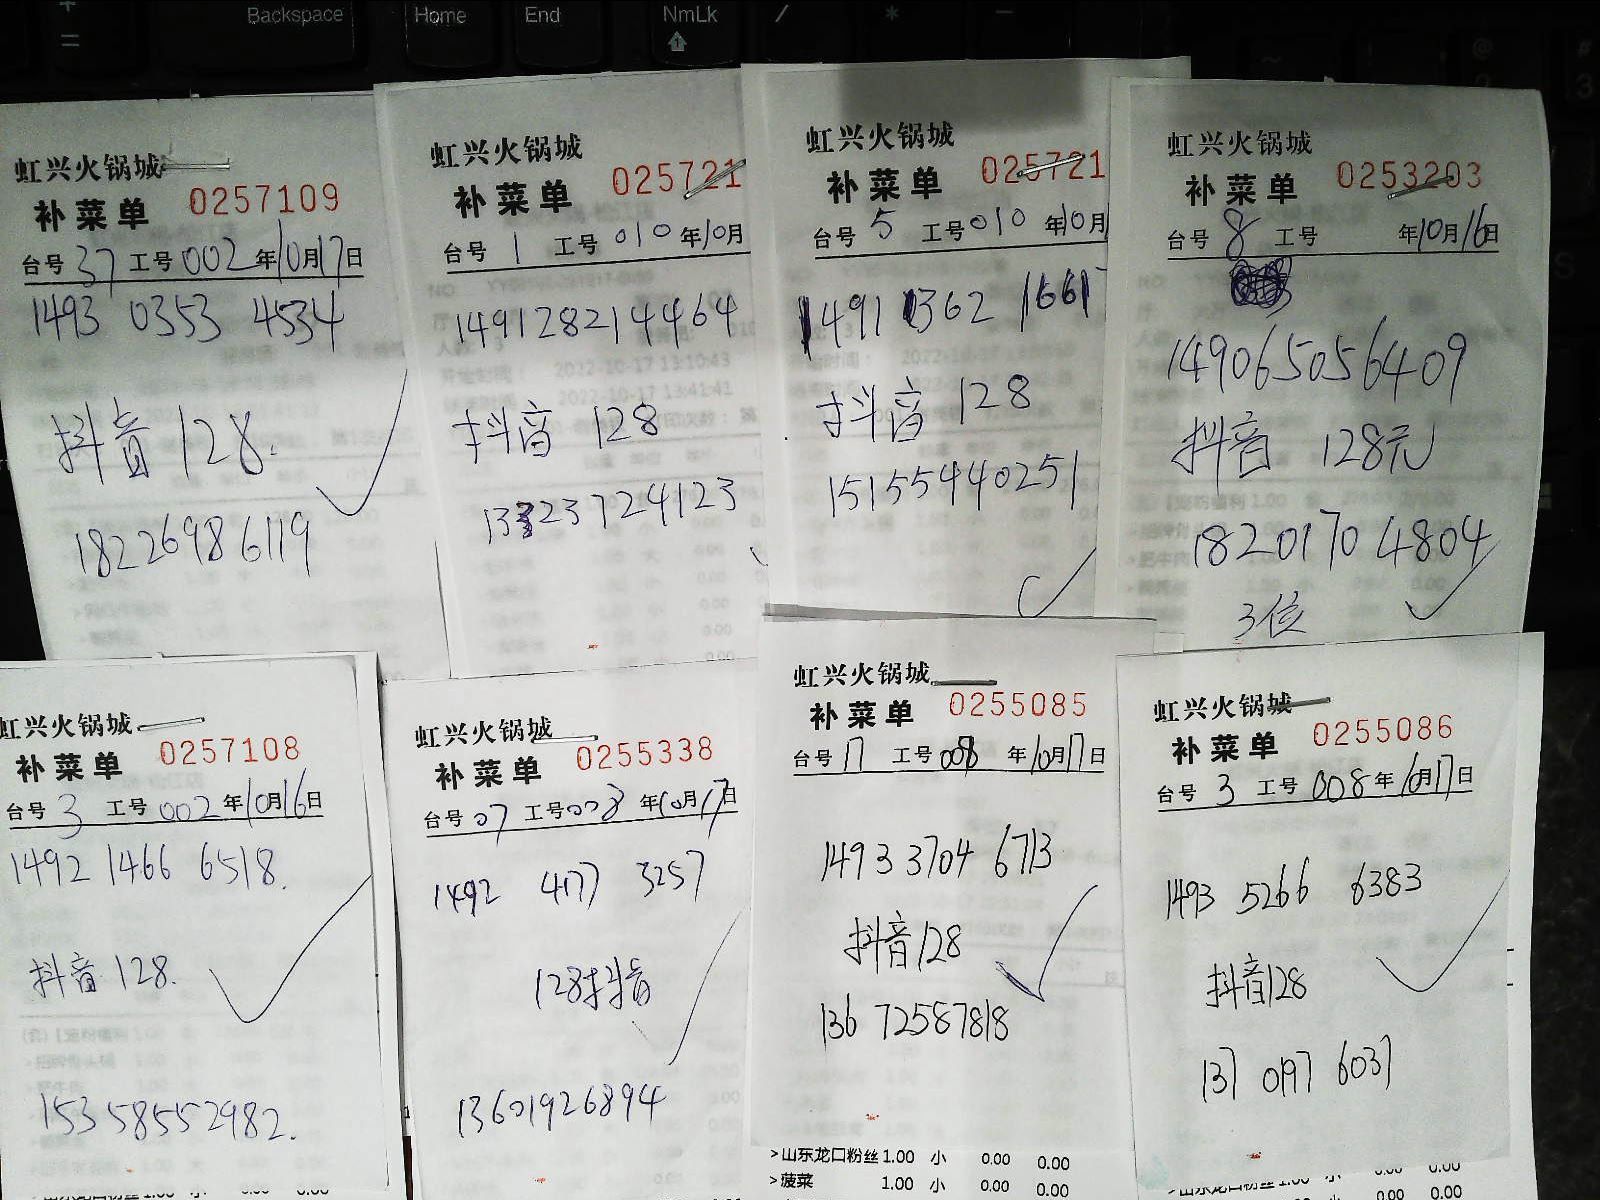 Backspace
Home
End
NmLk
虹兴火锅城
补菜单 0257109
台号 37 工号 002 年10月17日
1493 0353 4534
抖音 128.
18226986119
虹兴火锅城
补菜单 025721
台号 1 工号 010 年10月
149128214464
2022-10-17 13:10:43
2022-10-17 13:41:41
抖音 128
13323724123
虹兴火锅城
补菜单 025721
台号 5 工号 010 年10月
1491 1362 1661
抖音 128
15155440251
虹兴火锅城
补菜单 0253203
台号 8 工号 年10月16日
149065056409
抖音 128元
18201704804
3位
虹兴火锅城
补菜单 0257108
台号 3 工号 002 年10月16日
1492 1466 6518.
抖音 128.
15358552982.
虹兴火锅城
补菜单 0255338
台号 07 工号 008 年10月17日
1492 4177 3257
128抖音
13601926894
虹兴火锅城
补菜单 0255085
台号 17 工号 008 年10月17日
1493 3704 6713
抖音128
136 72587818
>山东龙口粉丝 1.00 小 0.00 0.00
>菠菜 1.00 小 0.00 0.00
虹兴火锅城
补菜单 0255086
台号 3 工号 008 年10月17日
1493 5266 6383
抖音128
137 0197 6037